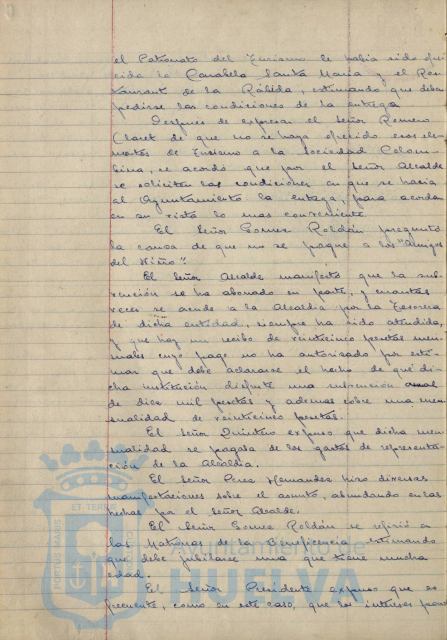 el Patronato del Turismo le habia sido ofre
cida la Carabela Santa Maria y el Res
taurant de la Rábida, estimando que deben
pedirse las condiciones de la entrega
Despues de expresar el señor Romero
Claret de que no se haya ofrecido esos ele-
mentos de Turismo a la Sociedad Colom-
bina, se acordó que por el señor Alcalde
se soliciten las condiciones en que se haria
al Ayuntamiento la entrega, para acordar
en su vista lo mas conveniente
El Señor Gomez Roldán preguntó
la causa de que no se pague a los "Amigos
del Niño".
El Señor Alcalde manifestó que la sub-
vención se ha abonado en parte, y cuantas
veces se acude a la Alcaldia por la Tesorera
de dicha entidad, siempre ha sido atendida,
y que hay un recibo de veinticinco pesetas men-
suales cuyo pago no ha autorizado por esti-
mar que debe aclararse el hecho de que di-
cha institución disfrute una subvención anual
de diez mil pesetas y ademas cobre una men-
sualidad de veinticinco pesetas.
El Señor Quintero expuso que dicha men-
sualidad se pagaba de los gastos de representa-
ción de la Alcaldia.
El señor Perez Hernandez hizo diversas
manifestaciones sobre el asunto, abundando en las
hechas por el señor Alcalde.
El Señor Gomez Roldán se refirió a
las Matronas de la Beneficencia estimando
que debe jubilarse una que tiene mucha
edad.
El Señor Presidente expuso que es
frecuente, como en este caso, que los intereses
PORTUS MARIS
ET TERRAE
Ayuntamiento de
HUELVA